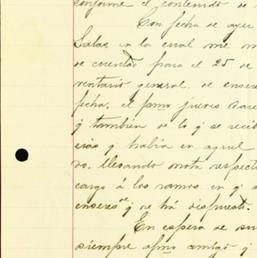 conforme el contenido de
Con fecha de ayer
Salas en la cual me
de cuentas para el 25 de
ventario general de enseres
fecha, el pmo jueves
y tambien de lo q se
y habia en aquel
do, llevando nota respect
cargo á los ramos en q
enseres q se há dispuesto.
En espera de su
siempre afmo amigo y